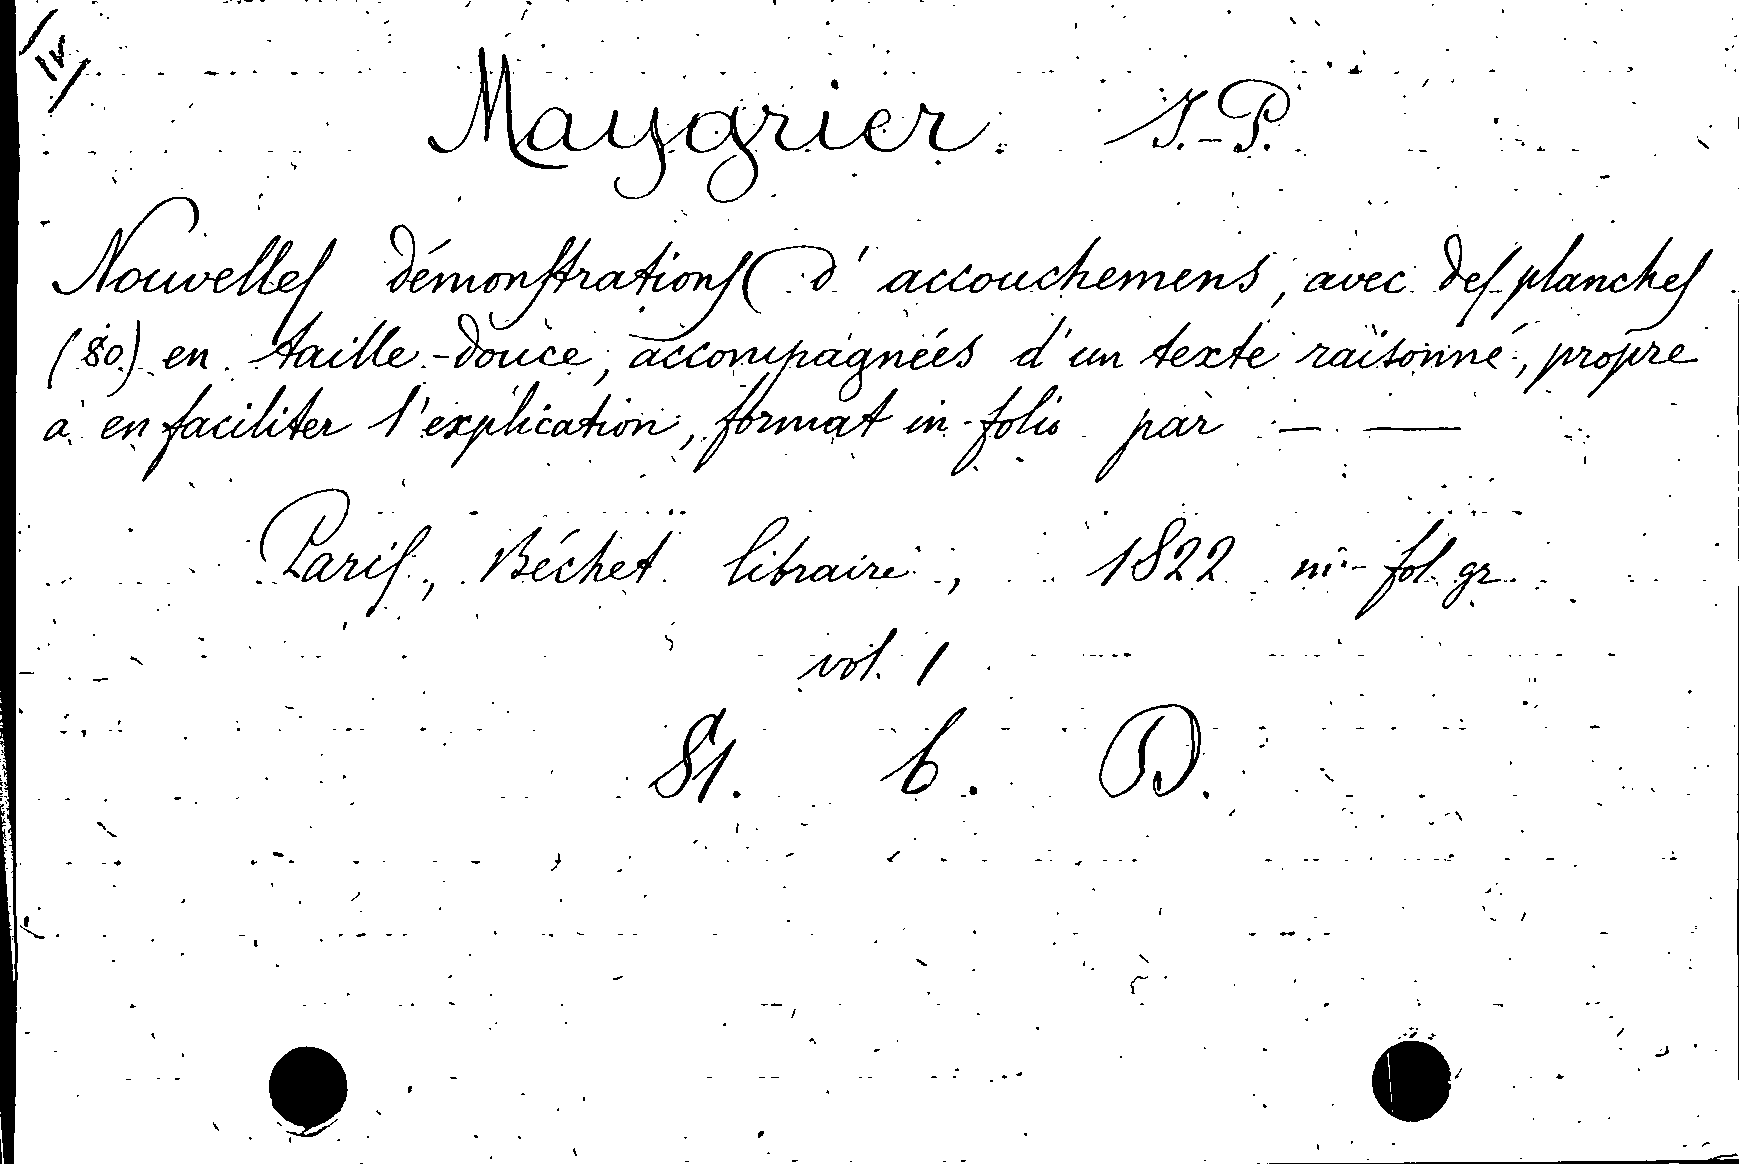 IV
Maygrier. J.-P.
Nouvelles démonstrations d'accouchemens, avec des planches
(80) en taille-douce, accompagnées d'un texte raisonné, propre
à en faciliter l'explication, format in-folio par — —
Paris, Béchet libraire, 1822 in-fol. gr.
vol. 1
S1. 6. D.